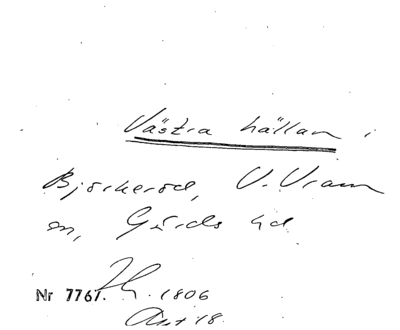 Västra hällan i
Björkeröd, V. Vram
sn, Gärds hd
Nr 7767. 1806
Akt 18